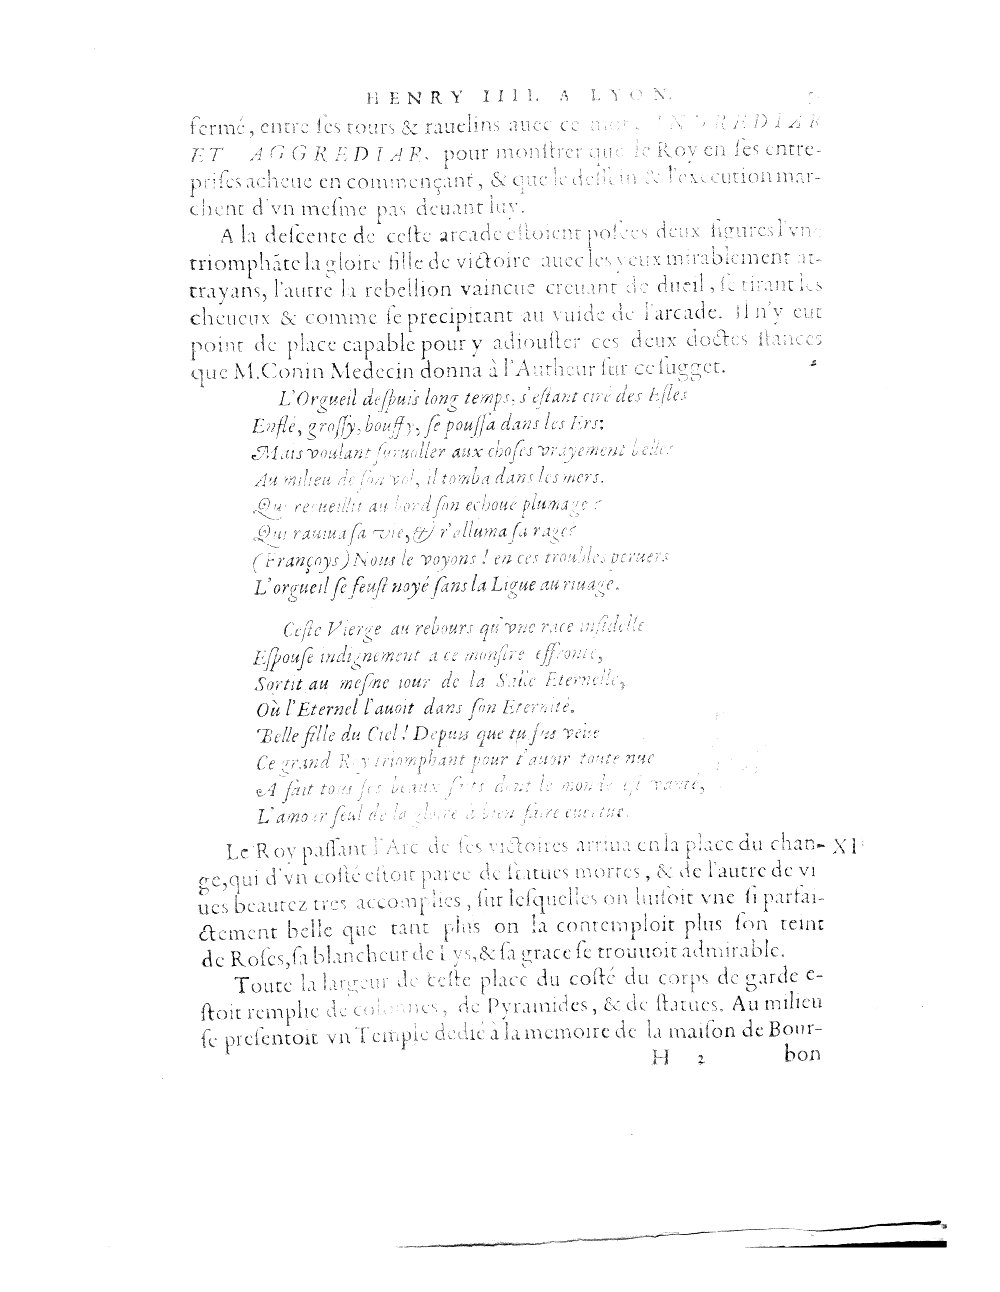 HENRY IIII. A LYON.
fermé, entre ſes tours & rauelins auec ce INGREDIAR
ET AGGREDIAR. pour monſtrer que le Roy en ſes entre-
priſes acheue en commençant, & que le deſſein & l'execution mar-
chent d'vn meſme pas deuant luy.
A la deſcente de ceſte arcade eſtoient poſées deux figures l'vne
triomphāte la gloire fille de victoire auec les yeux mirablement at-
trayans, l'autre la rebellion vaincue creuant de dueil, ſe tirant les
cheueux & comme ſe precipitant au vuide de l'arcade. Il n'y eut
point de place capable pour y adiouſter ces deux doctes ſtances
que M. Conin Medecin donna à l'Autheur ſur ce ſugget.
L'Orgueil deſpuis long temps, s'eſtant ciré des Eſles
Enflé, groſſy, bouffy, ſe pouſſa dans les Ers:
Mais voulant ſuruoller aux choſes vrayement belles
Au milieu de ſon vol, il tomba dans les mers.
Qui recueillit au bord ſon echoué plumage
Qui rauiua ſa vie, & r'alluma ſa rage
(Françoys) Nous le voyons! en ces troubles peruers
L'orgueil ſe feuſt noyé ſans la Ligue au riuage.
Ceſte Vierge au rebours qu'vne race infidelle
Eſpouſe indignement a ce monſtre effronté,
Sortit au meſme iour de la Salle Eternelle,
Où l'Eternel l'auoit dans ſon Eternité.
Belle fille du Ciel! Depuis que tu ſus veüe
Ce grand Roy triomphant pour t'auoir toute nue
A fait tous ſes beaux faits dont le monde eſt vanté,
L'amour ſeul de la gloire à bien faire
Le Roy paſſant l'Arc de ſes victoires arriua en la place du chan- XI
ge, qui d'vn coſté eſtoit parée de ſtatues mortes, & de l'autre de vi
ues beautez tres accomplies, ſur leſquelles on luiſoit vne ſi parfai-
ctement belle que tant plus on la contemploit plus ſon teint
de Roſes, ſa blancheur de Lys, & ſa grace ſe trouuoit admirable.
Toute la largeur de ceſte place du coſté du corps de garde e-
ſtoit remplie de colomnes, de Pyramides, & de ſtatues. Au milieu
ſe preſentoit vn Temple dedié à la memoire de la maiſon de Bour-
H 2 bon